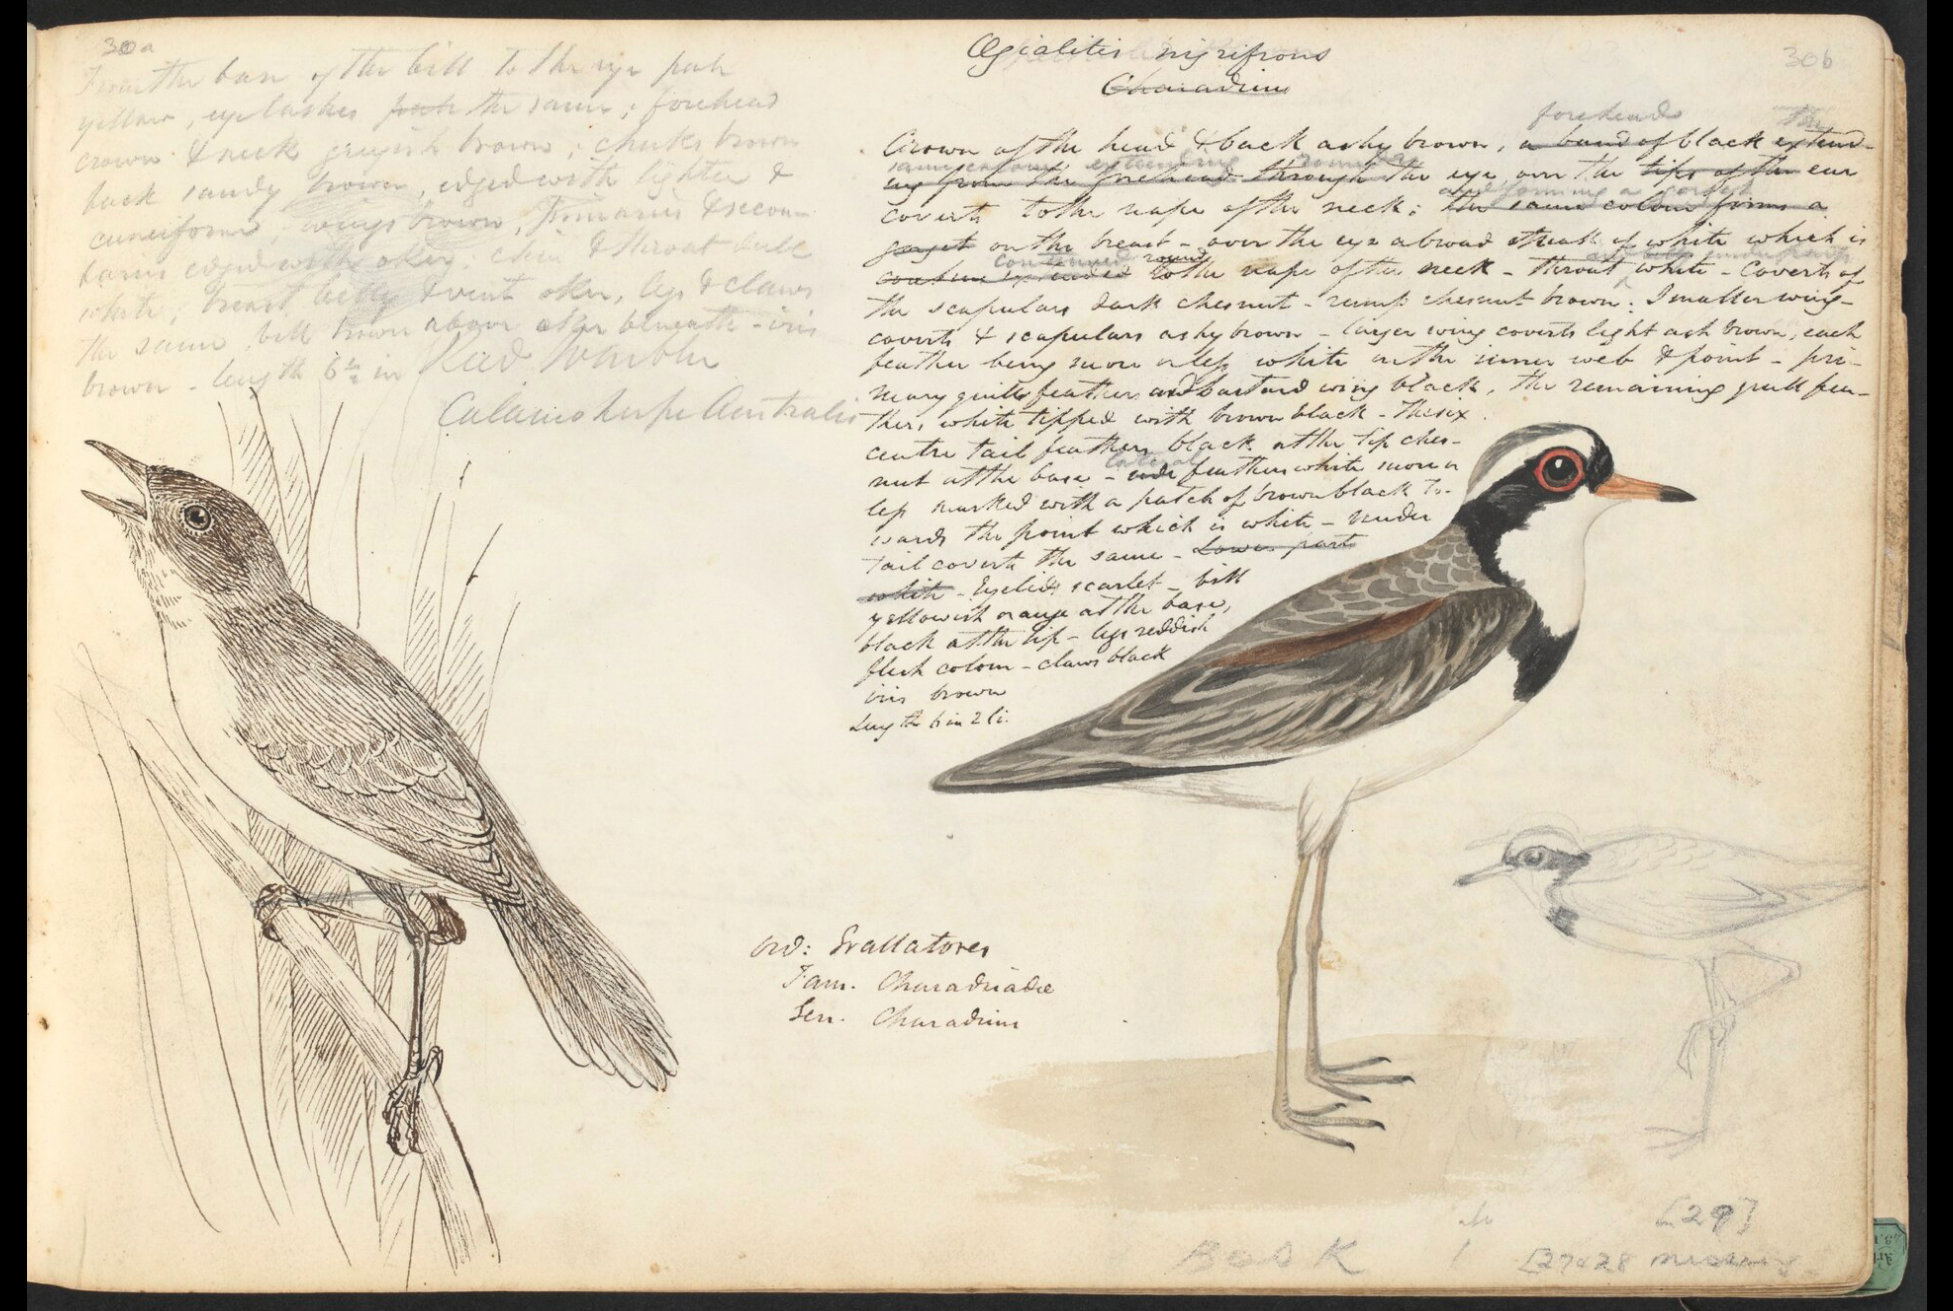 30a
From the base of the bill to the eye pale
yellow, eyelashes the same; forehead
crown & neck greyish brown; cheeks brown
back sandy brown, edged with lighter &
cuneiform, wings brown, primaries & secon-
daries edged with oker; chin & throat dull
white, breast belly & vent oker, legs & claws
the same bill brown above oker beneath - iris
brown - length 6½ in Reed Warbler
Calamoherpe Australis
Œgialitis nigrifrons
Charadrius
30b
forehead
Crown of the head & back ashy brown, a band of black extend-
extending round
ing from the forehead through the eye over the tips of the ear
and forming a gorget
coverts to the nape of the neck; the same colour forms a
gorget on the breast - over the eye a broad streak of white which is
continued round
to the nape of the neck - throat white - Coverts of
the scapulars dark chesnut - rump chesnut brown. Smaller wing-
coverts & scapulars ashy brown - larger wing coverts light ash brown, each
feather being more or less white on the inner web & point - pri-
mary quill feathers and bastard wing black, the remaining quill fea-
thers, white tipped with brown black - The six
centre tail feathers black at the tip ches-
nut at the base - side feathers white more or
lateral
less marked with a patch of brown black to-
wards the point which is white - under
tail coverts the same - Lower parts
white - Eyelids scarlet - bill
yellowish orange at the base,
black at the tip - legs reddish
flesh colour - claws black
iris brown
Length 6 in 2 li.
Ord: Grallatores
Fam. Charadriadæ
Gen. Charadrius
[29]
BOOK 1 [27&28 missing